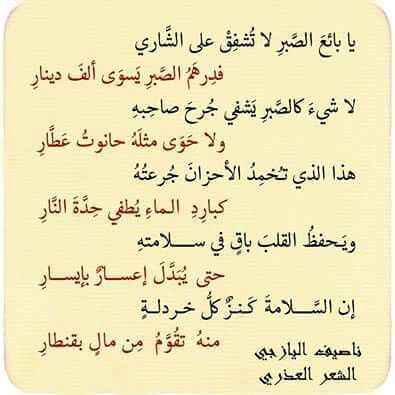 يا بائعَ الصَّبرِ لا تُشفِقْ على الشَّاري
فدِرهَمُ الصَّبرِ يَسوَى ألفَ دينارِ
لا شيءَ كالصَّبرِ يَشفي جُرحَ صاحبِهِ
ولا حَوَى مثلَهُ حانوتُ عَطَّارِ
هذا الذي تـُخمِدُ الأحزانَ جُرعتُهُ
كبارِدِ الـماءِ يُطفي حِدَّةَ النَّارِ
ويَـحفظُ القلبَ باقٍ في سـلامتهِ
حتى يُبَدَّلَ إعسـارٌ بإيسـارِ
إن السَّـلامةَ كَـنـزٌ كلُّ خـردلـةٍ
منهُ تقُوَّمُ مِن مالٍ بقنطارِ
ناصيف اليازجي
الشعر العذري